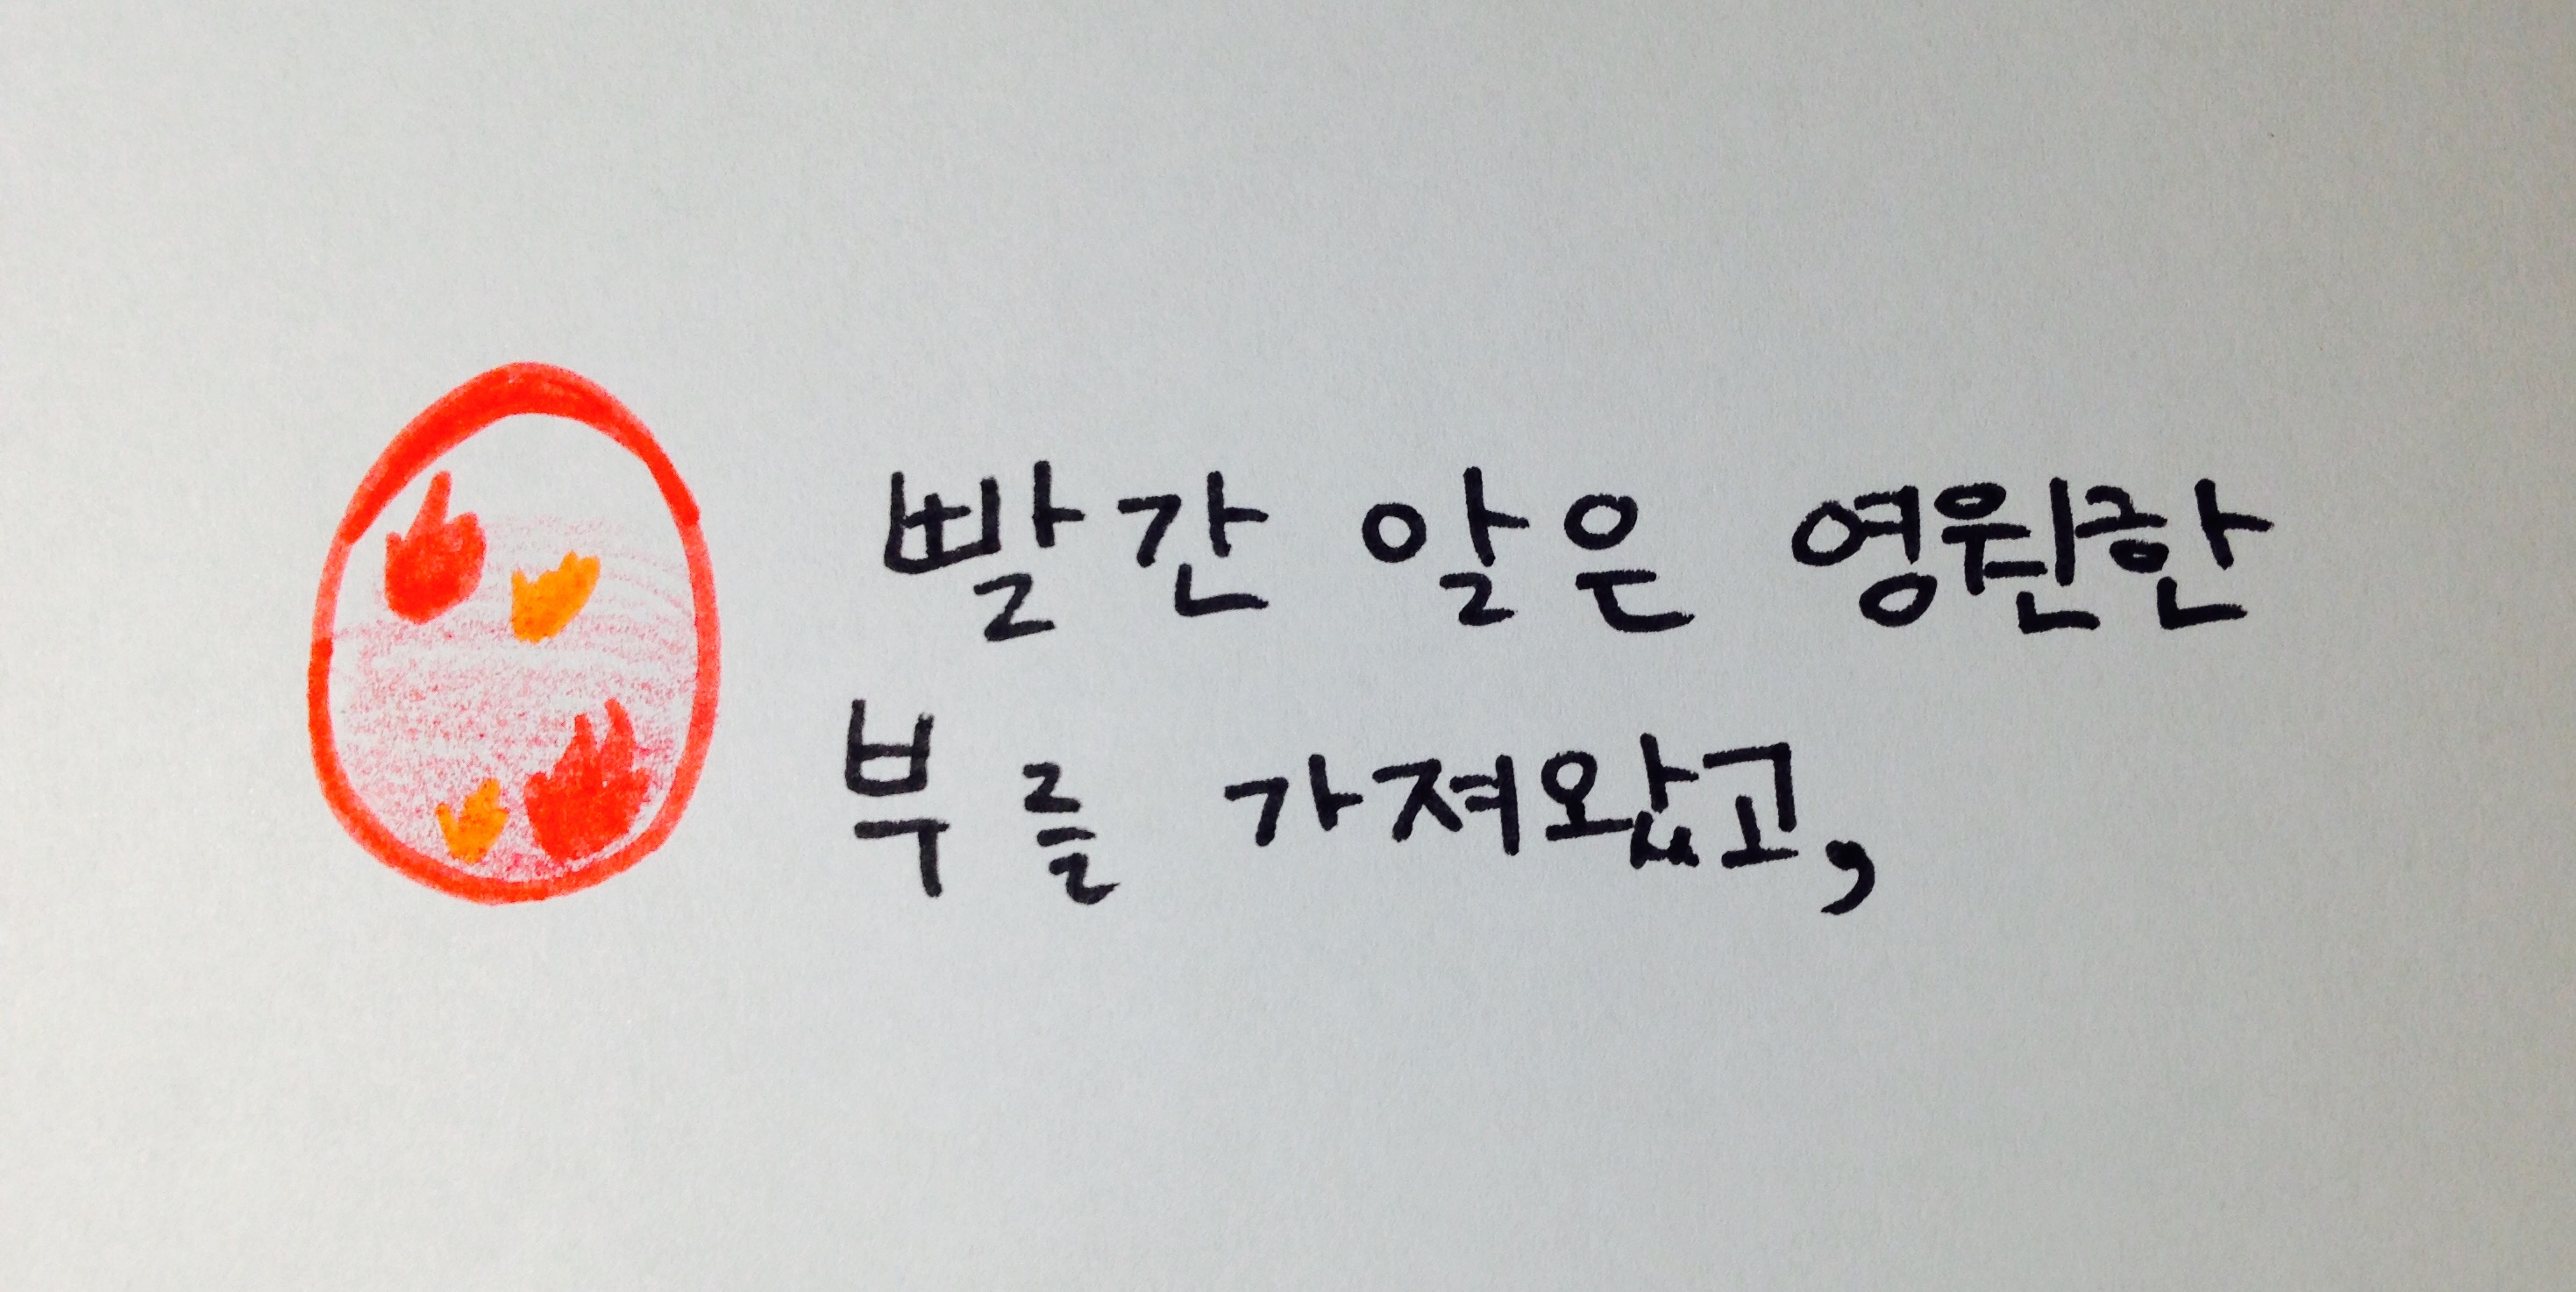 빨간 알은 영원한
부를 가져왔고,